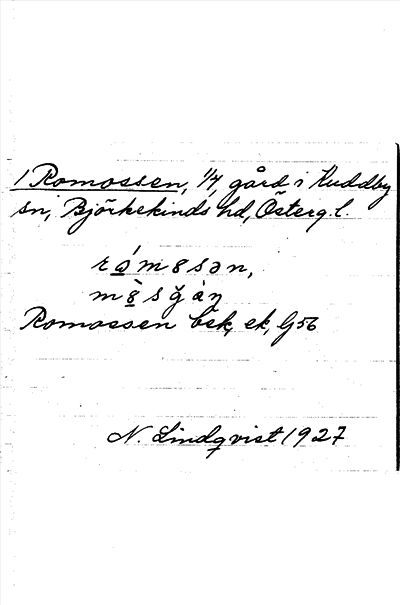 1 Romossen, 1/4, gård i Kuddby
sn, Björkekinds hd, Österg. l.
Romossen bsk, ek, G56
N. Lindqvist 1927